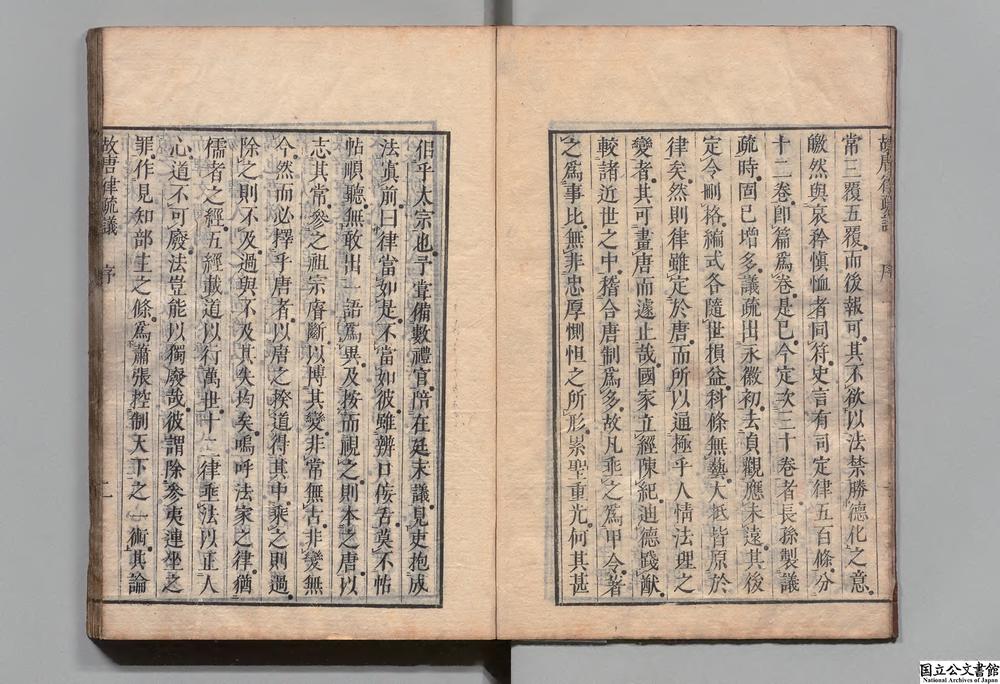 常三覆五覆而後報可其不欲以法禁勝德化之意
皦然與哀矜愼恤者同符史言有司定律五百條分
十二卷卽篇爲卷是已今定次三十卷者長孫製議
疏時固已增多議疏出永徽初去貞觀應未遠其後
定令刪格編式各隨世損益科條無藝大抵皆原於
律矣然則律雖定於唐而所以通極乎人情法理之
變者其可畫唐而遽止哉國家立經陳紀迪德踐猷
較諸近世之中稽合唐制爲多故凡乖之爲甲令著
之爲事比無非忠厚惻怛之所形累聖重光何其甚
故唐律疏議 序
佀乎太宗也予嘗備數禮官陪在廷末議見吏抱成
法寘前曰律當如是不當如彼雖辨口佞舌莫不帖
帖順聽無敢出一語爲異及按而視之則本之唐以
志其常參之祖宗睿斷以博其變非常無古非變無
今然而必擇乎唐者以唐之揆道得其中乘之則過
除之則不及過與不及其失均矣嗚呼法家之律猶
儒者之經五經載道以行萬世十二律乖法以正人
心道不可廢法豈能以獨廢哉彼謂除參夷連坐之
罪作見知部主之條爲蕭張控制天下之一術其論
故唐律疏議 序 二
国立公文書館
National Archives of Japan